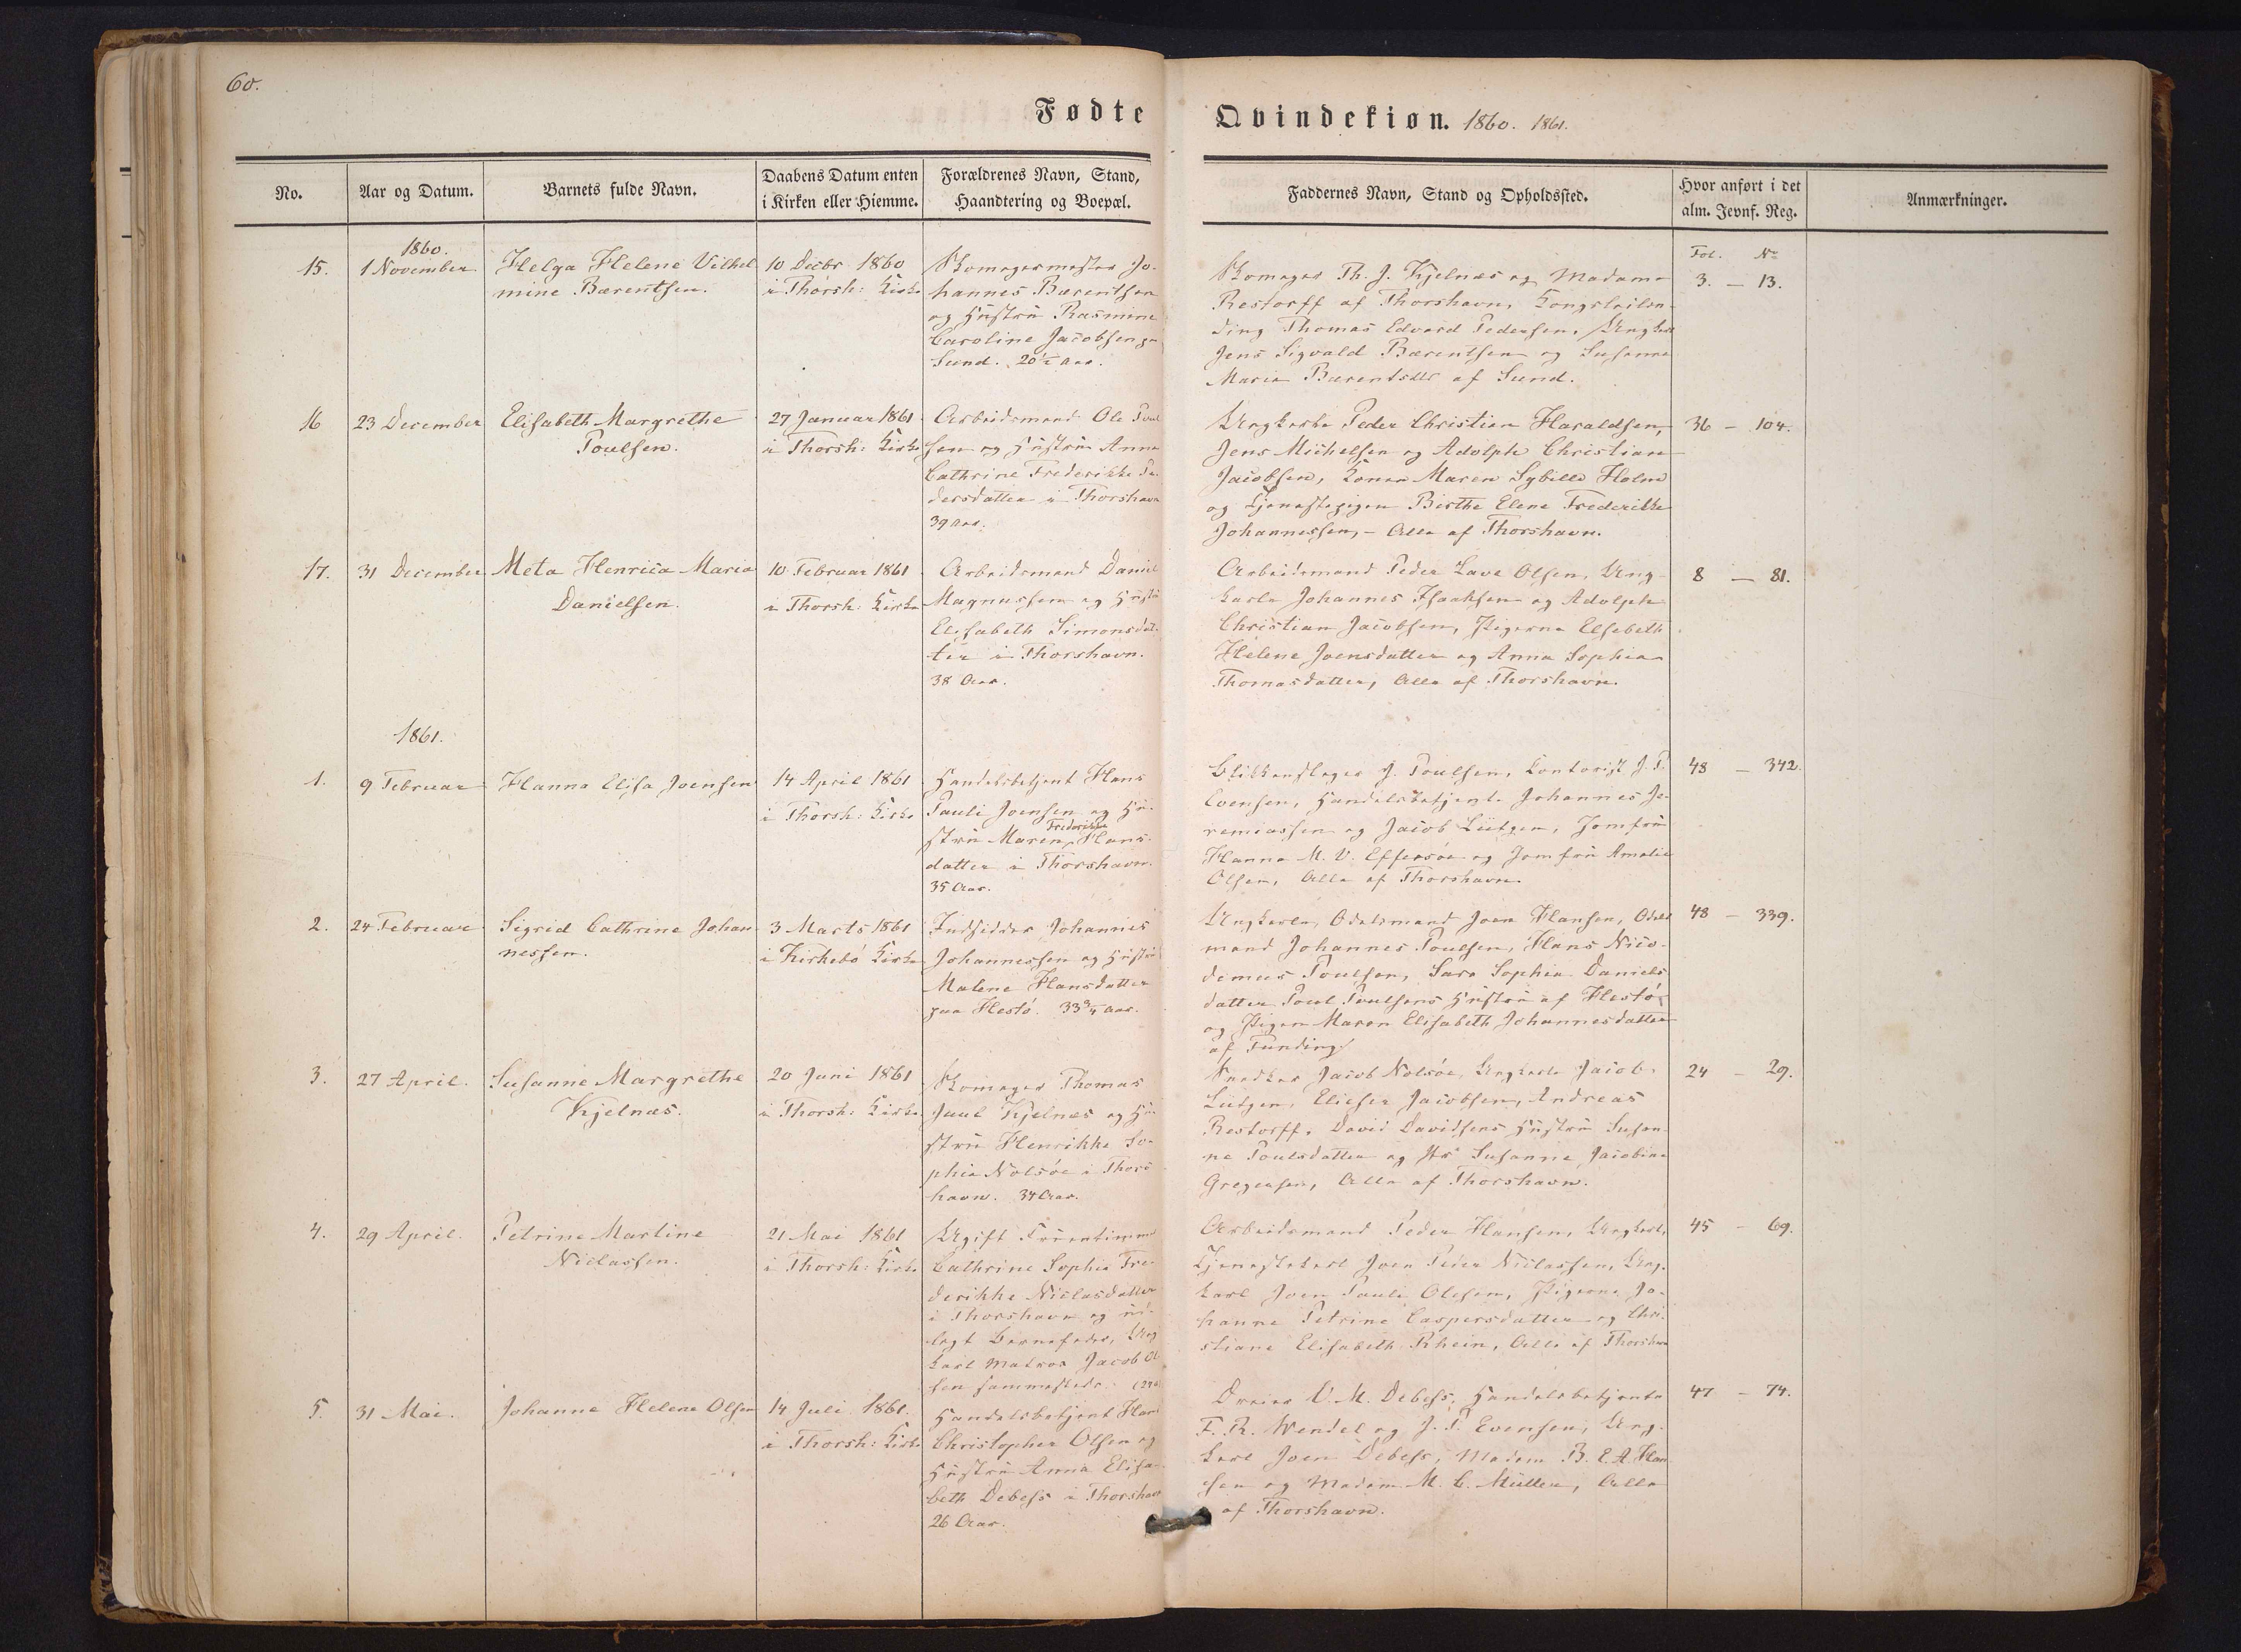 60.
Fødte
Qvindekiøn. 1860. 1861.
No.
Aar og Datum.
Barnets fulde Navn.
Daabens Datum enten
i Kirken eller Hiemme.
Forældrenes Navn, Stand,
Haandtering og Boepæl.
Faddernes Navn, Stand og Opholdssted.
Hvor anført i det
alm. Jevnf. Reg.
Anmærkninger.
15.
1860.
1 November
Helga Helene Vilhel
mine Bærentsen.
10 Decbr 1860
i Thorsh: Kirke
Skomagermester Jo-
hannes Bærentsen
og Hustru Rasmine
Caroline Jacobsen paa
Sund. 20½ Aar.
Skomager Th. J. Kjelnæs og Madame
Restorff af Thorshavn, Kongsleilen-
ding Thomas Edvard Pedersen, Ungkarl
Jens Sigvald Bærentsen og Susanne
Maria Bærentsdtr af Sund.
Fol. No
3. – 13.
16
23 December
Elisabeth Margrethe
Poulsen.
27 Januar 1861
i Thorsh: Kirke
Arbeidsmand Ole Poul
sen og Hustru Anna
Cathrine Frederikke Pe-
dersdatter i Thorshavn
39 Aar.
Ungkarle Peder Christian Haraldsen,
Jens Michelsen og Adolph Christian
Jacobsen, Konen Maren Sybille Holm
og Tjenestepigen Birthe Elene Frederikke
Johannessen, – Alle af Thorshavn.
36 – 104.
17.
31 December
Meta Henrica Maria
Danielsen.
10 Februar 1861
i Thorsh: Kirke
Arbeidsmand Daniel
Magnussen og Hustru
Elisabeth Simonsdat-
ter i Thorshavn.
38 Aar.
Arbeidsmand Peder Lave Olsen, Ung-
karle Johannes Isaaksen og Adolph
Christian Jacobsen, Pigerne Elsebeth
Helene Joensdatter og Anna Sophia
Thomasdatter, Alle af Thorshavn.
8 – 81.
1861.
1.
9 Februar
Hanna Elisa Joensen
14 April 1861
i Thorsh: Kirke
Handelsbetjent Hans
Pauli Joensen og Hu-
stru Maren Frederikke Hans-
datter i Thorshavn.
35 Aar.
Blikkenslager J. Poulsen, Kontorist J. P.
Evensen, Handelsbetjent Johannes Je-
remiassen og Jacob Lützen, Jomfru
Hanna M. V. Effersøe og Jomfru Amalie
Olsen, Alle af Thorshavn.
48 – 342.
2.
24 Februar
Sigrid Cathrine Johan
nessen.
3 Marts 1861
i Kirkebø Kirke
Indsidder Johannes
Johannessen og Hustru
Malene Hansdatter
paa Hestø. 33¾ Aar.
Ungkarle, Odelsmand Joen Hansen, Odels
mand Johannes Poulsen, Hans Nico-
demus Poulsen, Sara Sophia Daniels
datter Poul Poulsens Hustru af Hestø
og Pigen Maren Elisabeth Johannesdatter
af Funding.
48 – 339.
3.
27 April.
Susanne Margrethe
Kjelnæs.
20 Juni 1861
i Thorsh: Kirke
Skomager Thomas
Juul Kjelnæs og Hu-
stru Henrikke So-
phia Nolsøe i Thors
havn. 34 Aar.
Snedker Jacob Nolsøe, Ungkarle Jacob
Lützen, Elieser Jacobsen, Andreas
Restorff, David Davidsens Hustru Susan-
ne Poulsdatter og Susanne Jacobine
Gregersen, Alle af Thorshavn.
24 – 29.
4.
29 April.
Petrine Martine
Niclassen.
21 Mai 1861
i Thorsh: Kirke
Ugift Fruentimmer
Cathrine Sophia Fre-
derikke Niclasdatter
i Thorshavn og ud-
lagt Barnefader, Ung
karl Matros Jacob Ol
sen sammesteds.
Arbeidsmand Peder Hansen, Ungkarl,
Tjenestekarl Joen Peder Niclassen, Ung-
karl Joen Pauli Olesen, Pigerne Jo-
hanne Petrine Caspersdatter og Chri-
stiane Elisabeth Rhein, Alle af Thorshavn
45 – 69.
5.
31 Mai.
Johanne Helene Olsen
14 Juli 1861.
i Thorsh: Kirke
Handelsbetjent Hans
Christopher Olsen og
Hustru Anna Elisa-
beth Debess i Thorshavn
26 Aar.
Dreier V. M. Debess, Handelsbetjente
F. R. Wendel og J. P. Evensen, Ung-
karl Joen Debess, Madam B. E. A. Han
sen og Madam M. C. Müller, Alle
af Thorshavn.
47 – 74.